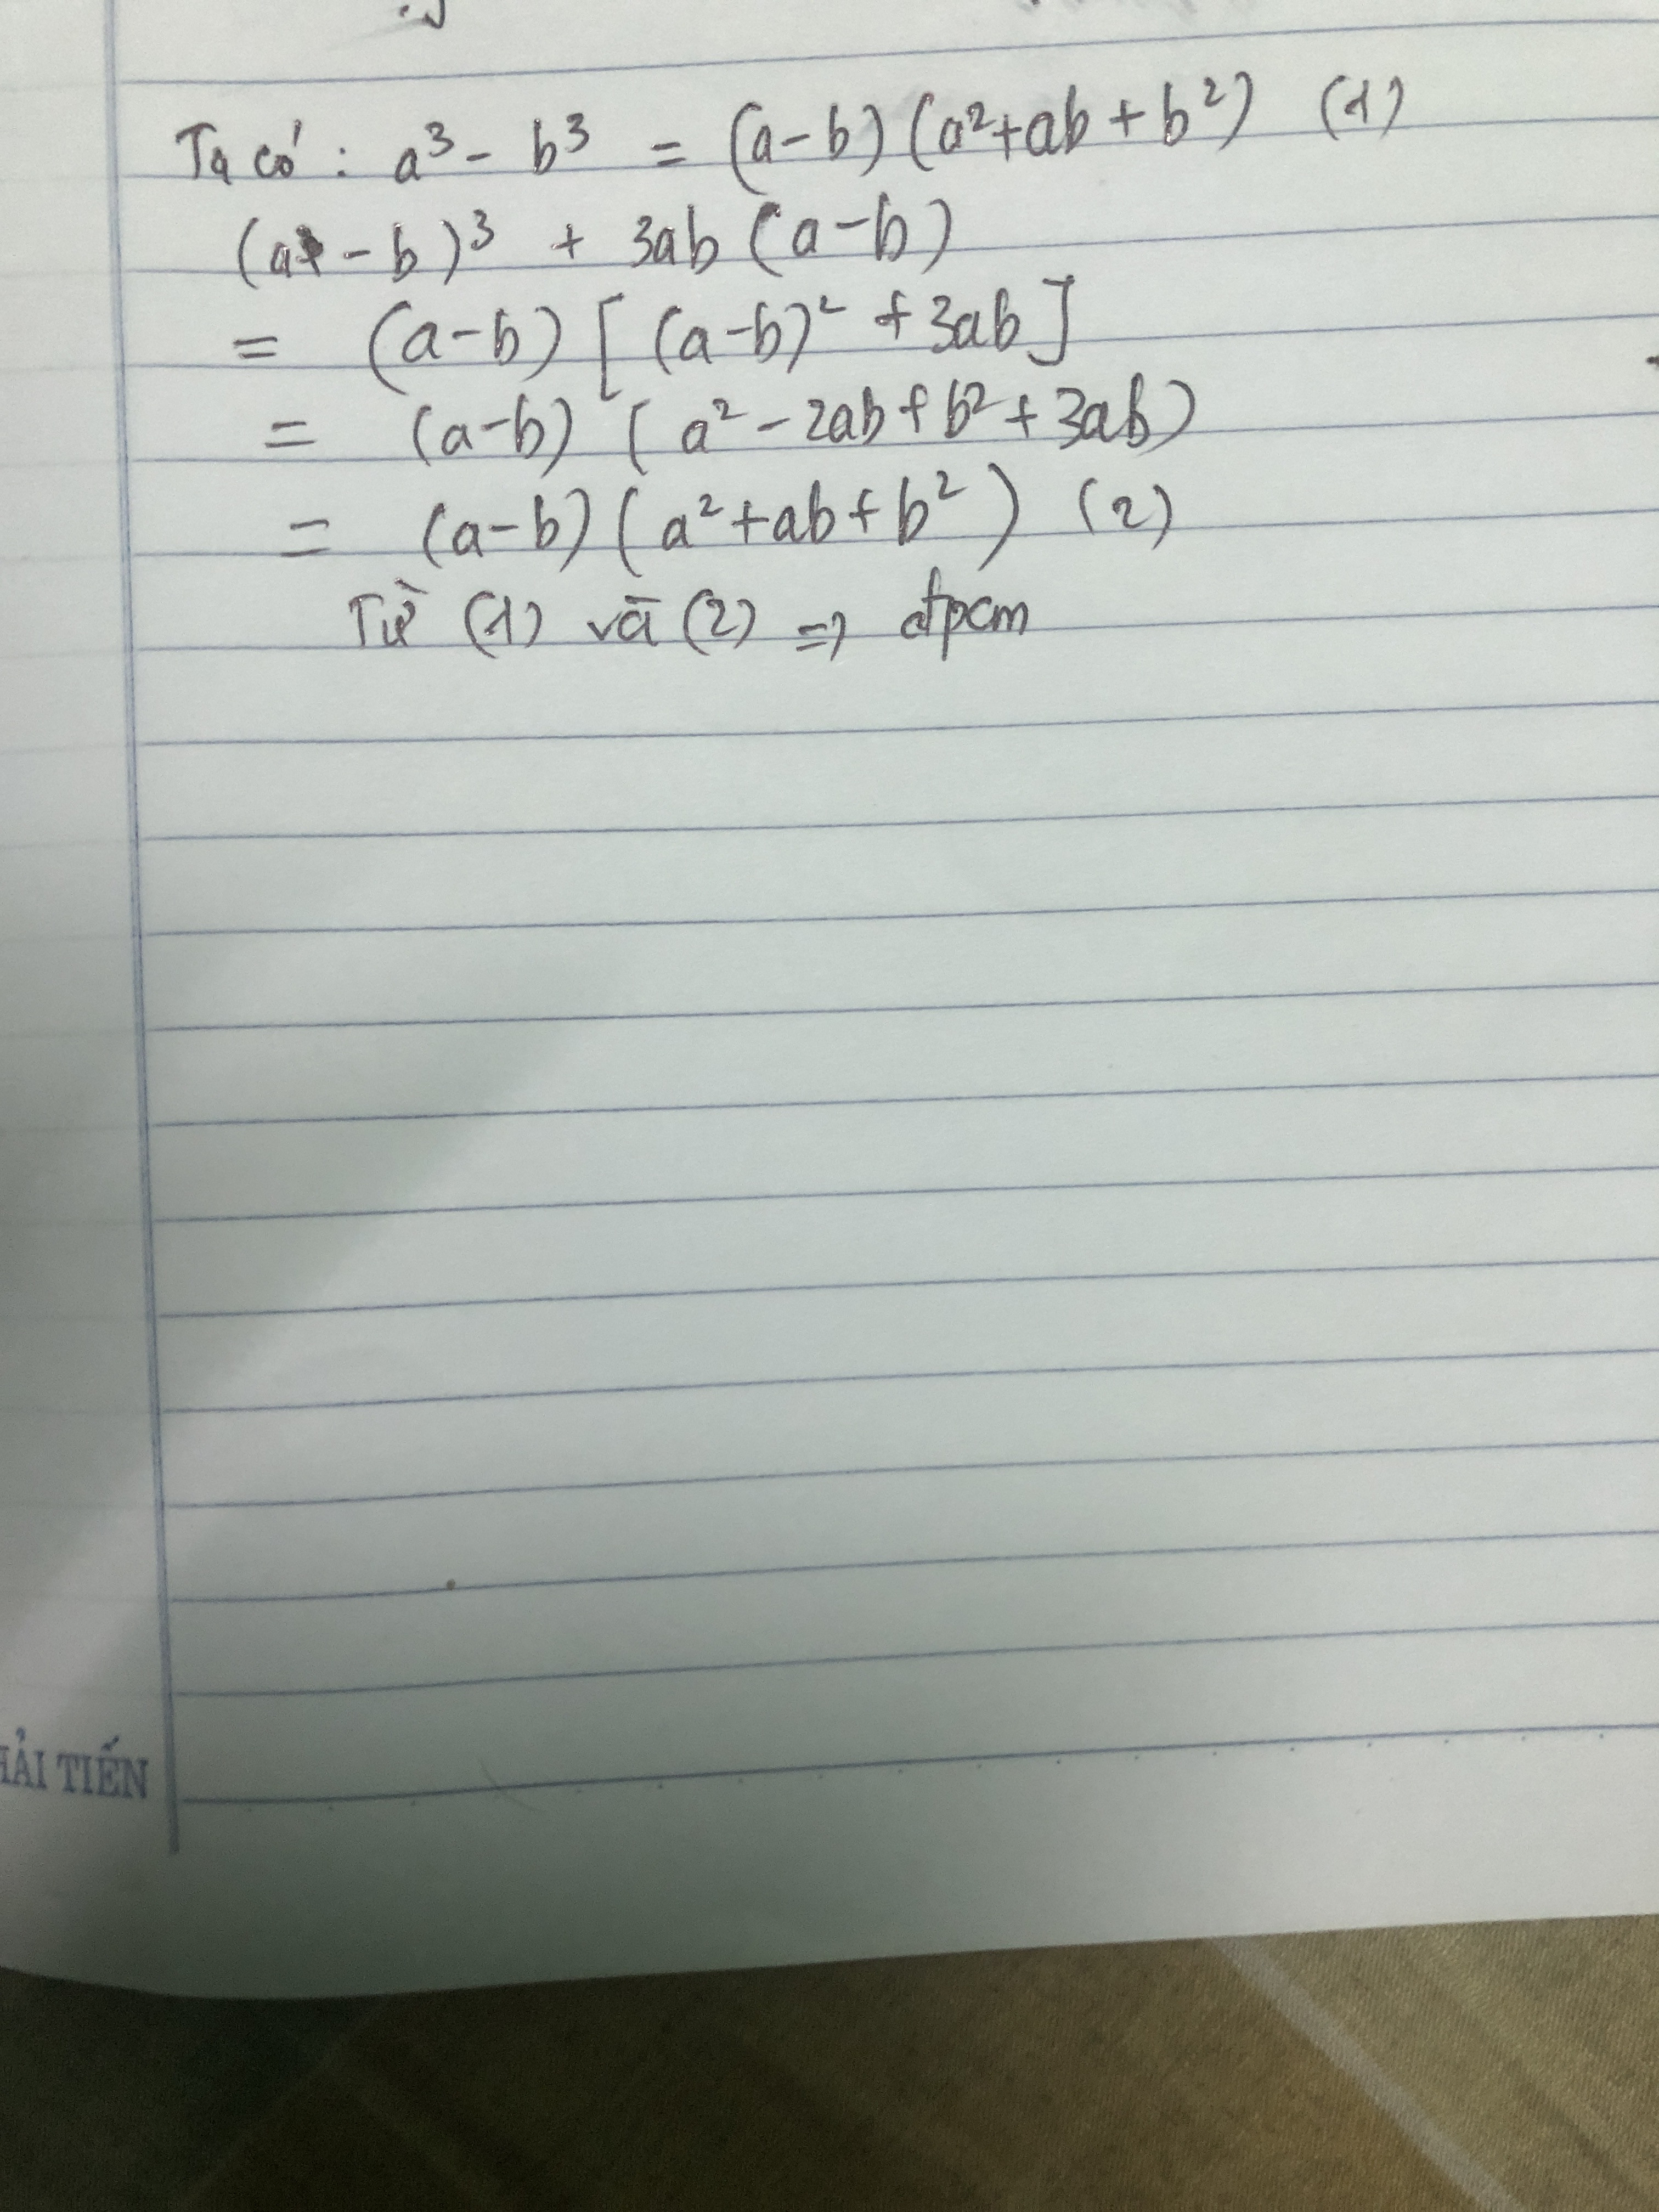 Ta có: a³ - b³ = (a-b)(a²+ab+b²) (1)
(a - b)³ + 3ab (a-b)
= (a-b) [(a-b)² + 3ab]
= (a-b) (a² - 2ab + b² + 3ab)
= (a-b)(a² + ab + b²) (2)
Từ (1) và (2) => đpcm
HẢI TIẾN